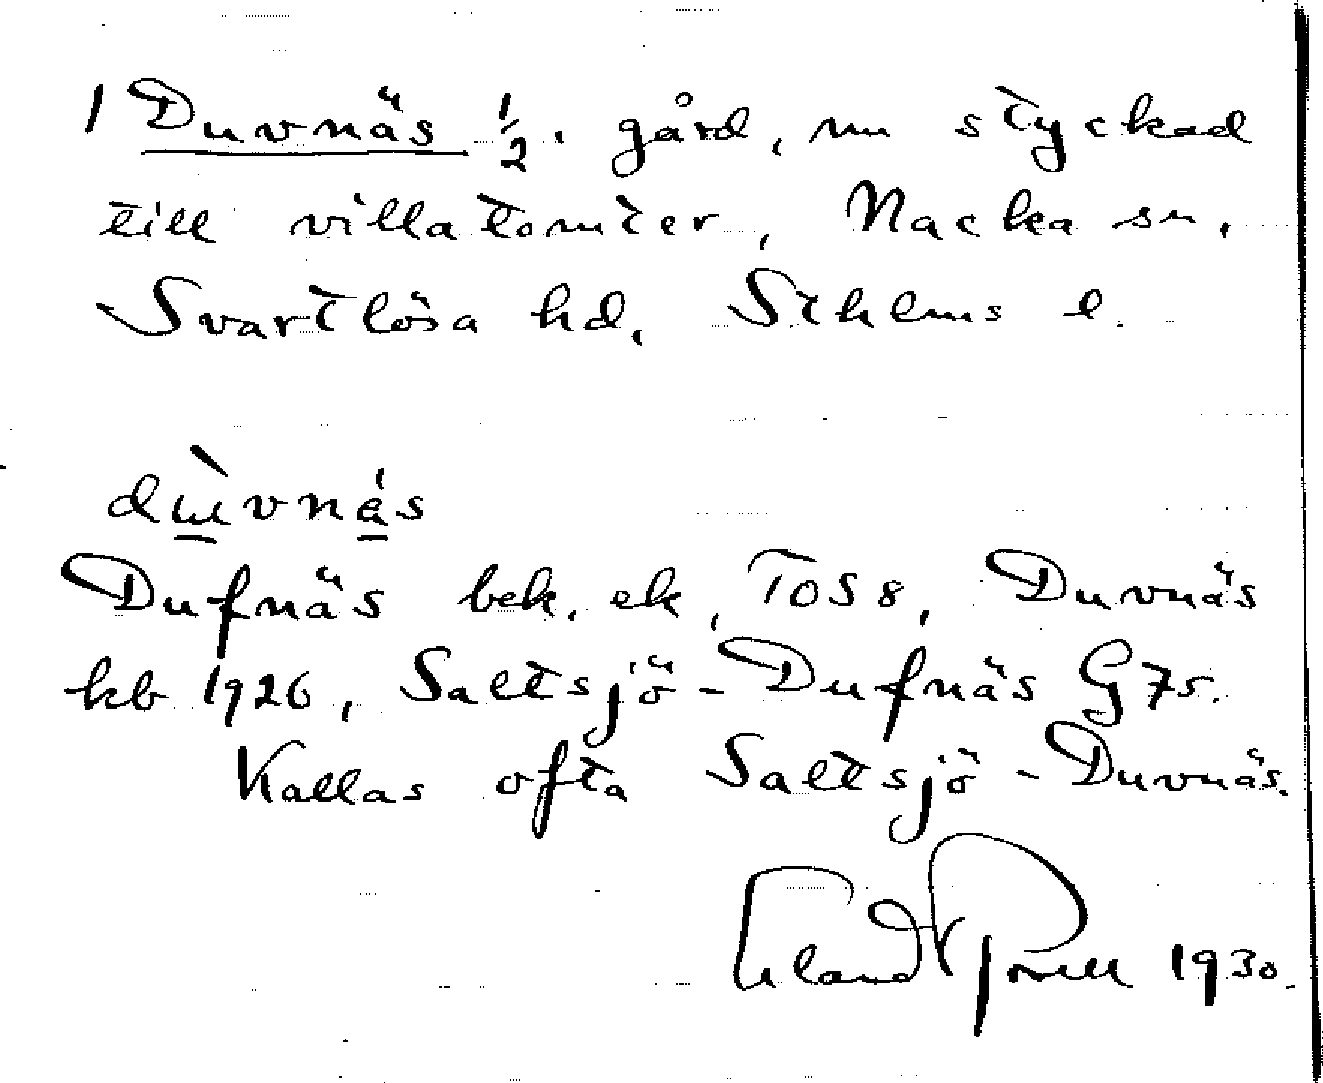 1 Duvnäs 1/2. gård, nu styckad
till villatomter, Nacka sn,
Svartlösa hd, Sthlms l.
dùvnás
Dufnäs bek. ek, TOS 8, Duvnäs
kb 1926, Saltsjö-Dufnäs G75.
Kallas ofta Saltsjö-Duvnäs.
1930.